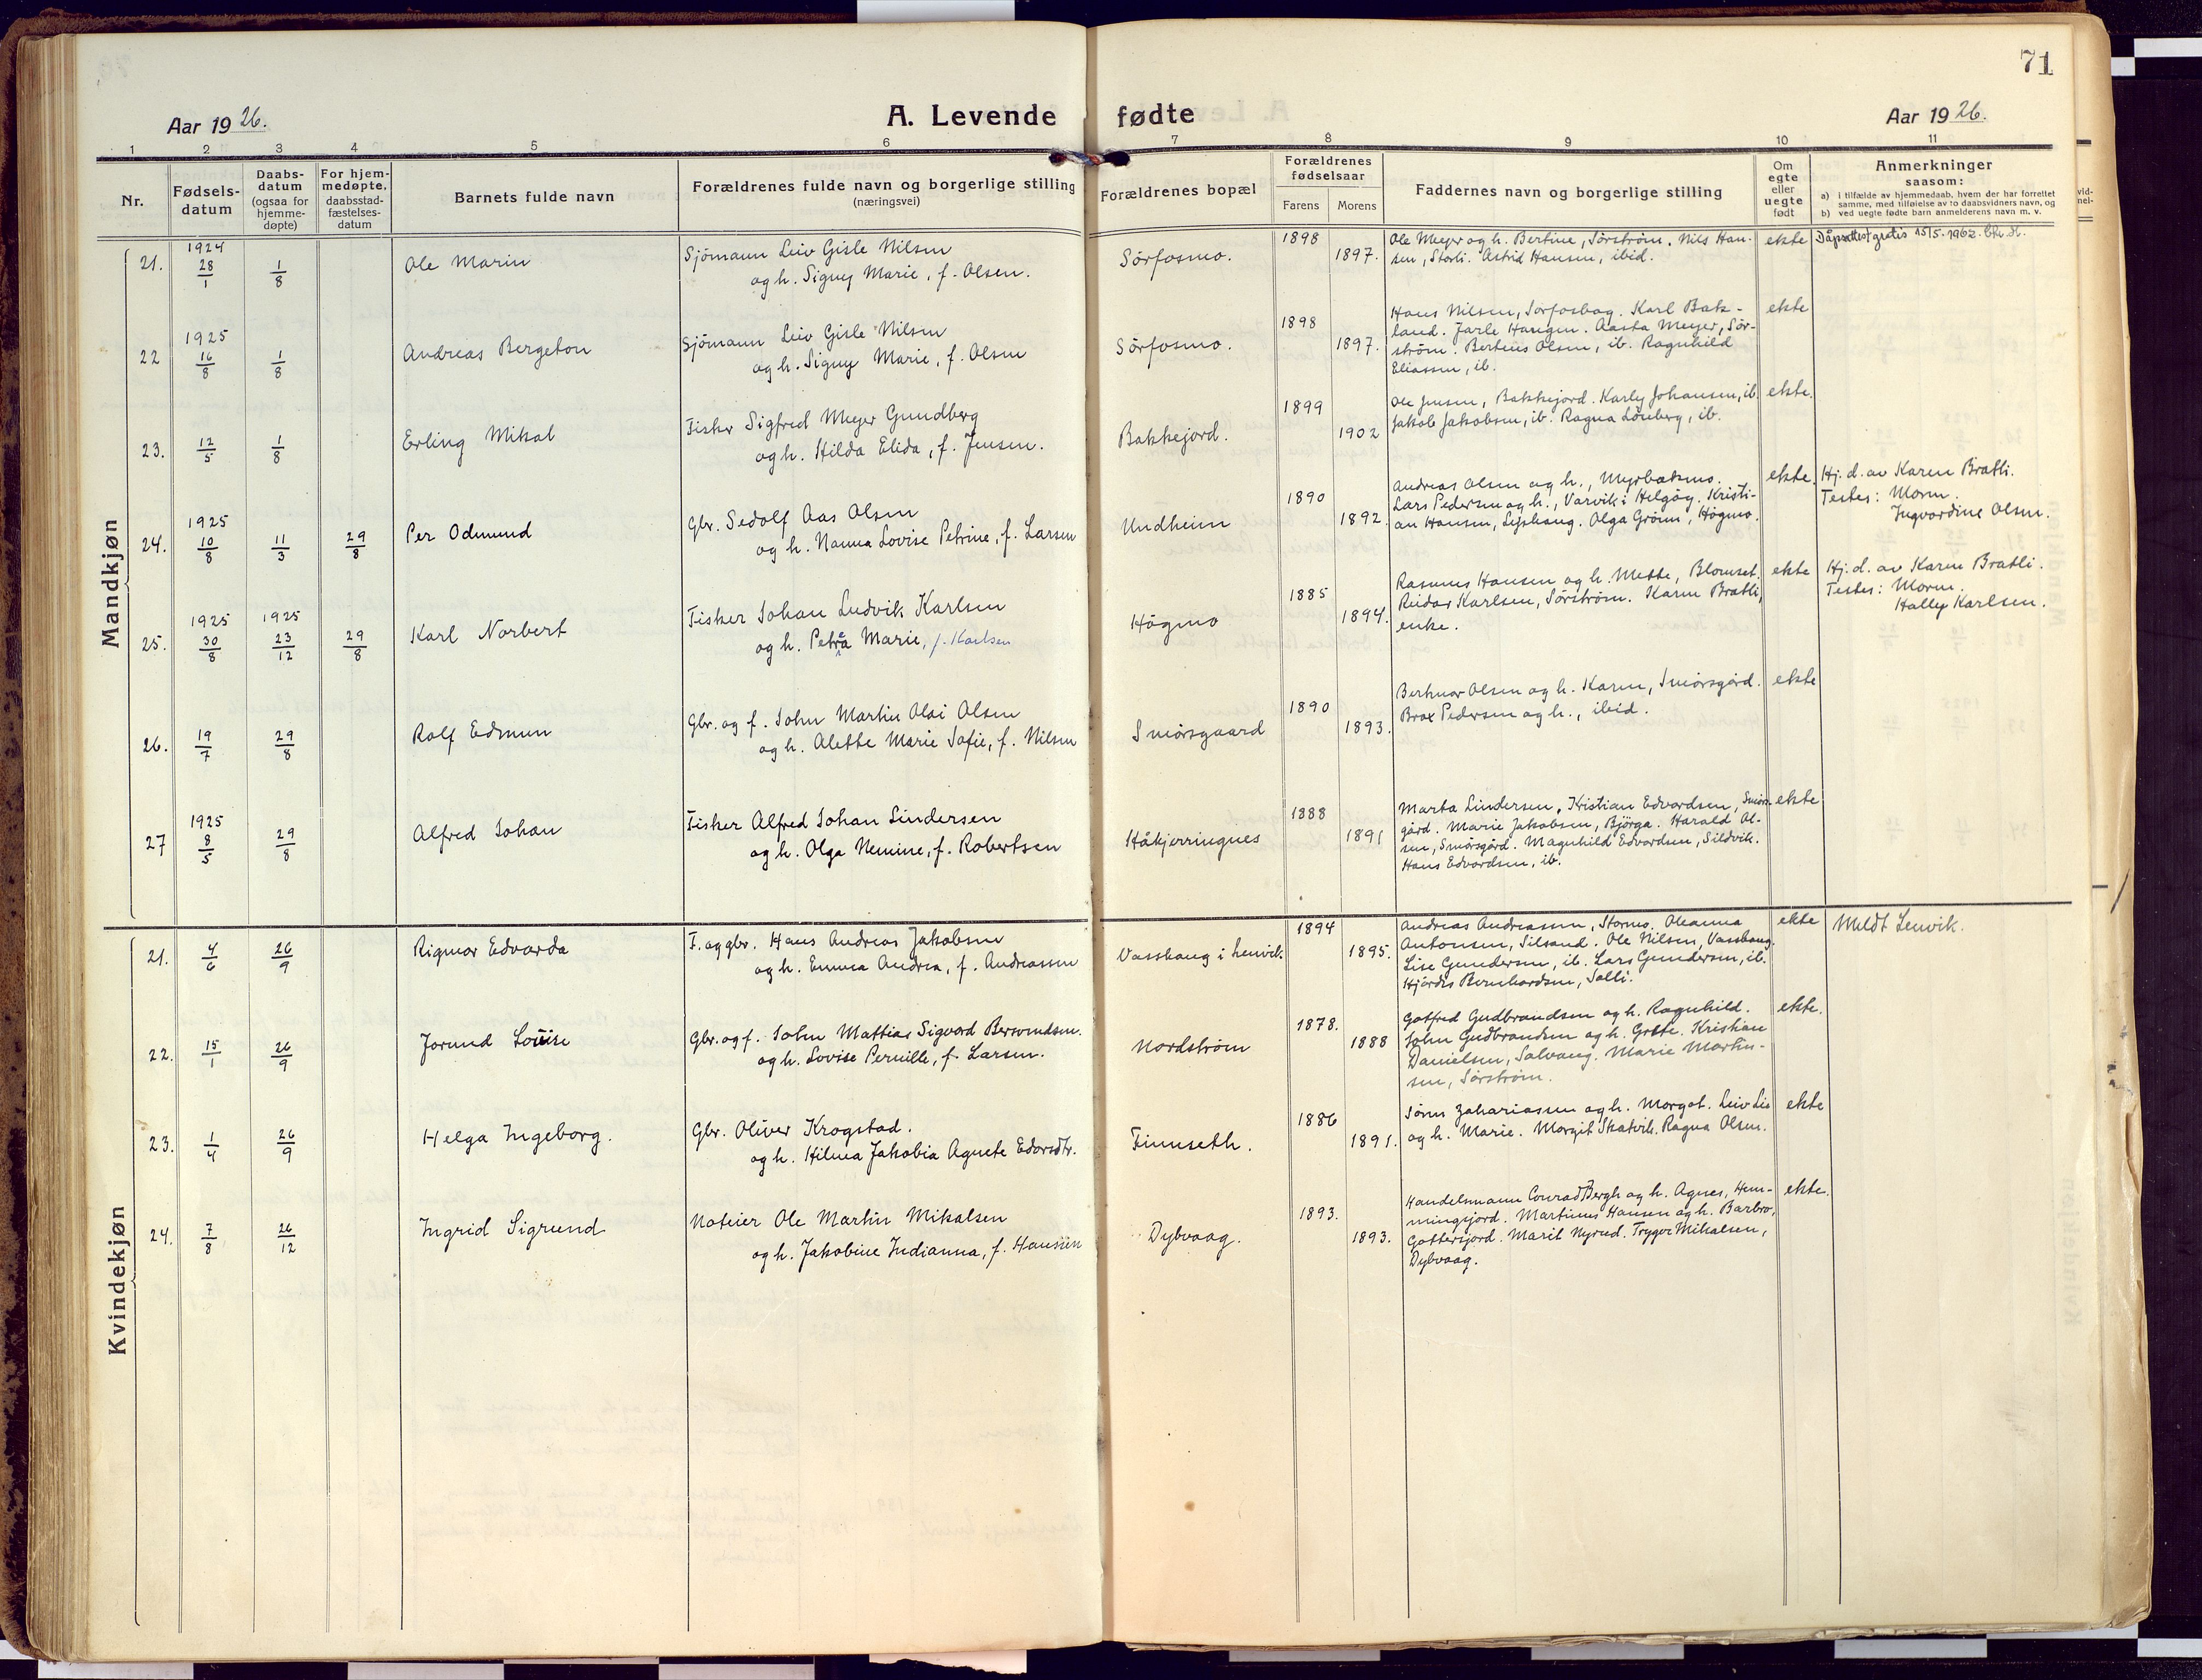 71
Aar 1926.
A. Levende fødte
Aar 1926.
1 2 3 4 5 6 7 8 9 10 11
Nr.
Fødsels-
datum
Daabs-
datum
(ogsaa for
hjemme-
døpte)
For hjem-
medøpte,
daabsstad-
fæstelses-
datum
Barnets fulde navn
Forældrenes fulde navn og borgerlige stilling
(næringsvei)
Forældrenes bopæl
Forældrenes
fødselsaar
Farens Morens
Faddernes navn og borgerlige stilling
Om
egte
eller
uegte
født
Anmerkninger
saasom:
a) i tilfælde av hjemmedaab, hvem der har forrettet
samme, med tilføielse av to daabsvidners navn, og
b) ved uegte fødte barn anmelderens navn m. v.
Mandkjøn
21. 1924 28/1 1/8 Ole Marin
Sjömann Leiv Gisle Nilsen
og h. Signy Marie, f. Olsen.
Sörfosmo. 1898 1897.
Ole Meyer og h. Bertine, Sörström. Nils Han-
sen, Storli. Astrid Hansen, ibid.
ekte
Dåpsattest gratis 15/5. 1962.
22 1925 16/8 1/8 Andreas Bergeton
Sjömann Leiv Gisle Nilsen
og h. Signy Marie, f. Olsen
Sörfosmo. 1898 1897.
Hans Nilsen, Sörfosbag. Karl Bak-
land. Jarle Haugen. Aasta Meyer, Sör-
ström. Berteus Olsen, ib. Ragnhild
Eliassen, ib.
ekte
23. 12/5 1/8 Erling Mikal
Fisker Sigfred Meyer Gundberg
og h. Hilda Elida, f. Jensen.
Bakkejord. 1899 1902
Ole Jensen, Bakkejord. Karly Johansen, ib.
Jakob Jakobsen, ib. Ragna Lönberg, ib.
ekte.
24. 1925 10/8 11/3 29/8 Per Odmund
Gbr. Sedolf Aas Olsen
og h. Nanna Lovise Petrine, f. Larsen
Undheim 1890 1892.
Andreas Olsen og h., Myrbakmo.
Lars Pedersen og h., Varvik i Helgöy. Kristi-
an Hansen, Leishaug. Olga Grönn, Högmo.
ekte.
Hj. d. av Karen Bratli.
Testes: Moren.
Ingvardine Olsen.
25. 1925 30/8 1925 23/12 29/8 Karl Norbert
Fisker Johan Ludvik Karlsen
og h. Petra Marie, f. Karlsen
Högmo 1885 1894.
Rasmus Hansen og h. Mette, Blomset.
Reidar Karlsen, Sörström. Karen Bratli,
enke.
ekte
Hj. d. av Karen Bratli.
Testes: Moren.
Hally Karlsen.
26. 19/7 29/8 Rolf Edmun
Gbr. og f. John Martin Olai Olsen
og h. Alette Marie Sofie, f. Nilsen
Smörsgaard 1890 1893.
Berhnar Olsen og h. Karen, Smörsgård.
Brox Pedersen og h., ibid.
ekte
27 1925 8/5 29/8 Alfred Johan
Fisker Alfred Johan Lindersen
og h. Olga Nemine, f. Robertsen
Håkjerringnes 1888 1891
Marta Lindersen. Kristian Edvardsen, Smörs-
gård. Marie Jakobsen, Björga. Harald Ol-
sen, Smörsgård. Magnhild Edvardsen, Sildvik.
Hans Edvardsen, ib.
ekte
Kvindekjøn
21. 4/6 26/9 Rigmor Edvarda
F. og gbr. Hans Andreas Jakobsen
og h. Emma Andrea, f. Andreassen
Vasshaug i Lenvik. 1894 1895.
Andreas Andreassen, Stormo. Oleanna
Antonsen, Silsand. Ole Nilsen, Vasshaug.
Lise Gundersen, ib. Lars Gundersen, ib.
Hjördis Bernhardsen, Solli.
ekte
Meldt Lenvik.
22. 15/1 26/9 Jorund Loūise
Gbr. og f. John Mattias Sigvard Bersvendsen.
og h. Lovise Pernille, f. Larsen.
Nordström 1878. 1888
Gotfred Gudbrandsen og h. Ragnhild.
John Gudbrandsen og h. Grete. Kristian
Danielsen, Solvang. Marie Martin-
sen, Sörström.
ekte.
23. 1/4 26/9 Helga Ingeborg.
Gbr. Oliver Krogstad.
og h. Hilma Jakobia Agnete Edvrsdtr.
Finnseth. 1886 1891.
Sören Zahariassen og h. Margot. Leiv Lie
og h. Marie. Margit Skatvik. Ragna Olsen.
ekte
24. 7/8 26/12 Ingrid Sigrund
Noteier Ole Martin Mikalsen
og h. Jakobine Indianna, f. Hanssen
Dybvaag. 1893. 1893.
Handelsmann Conrad Bergh og h. Agnes, Hem-
mingsjord. Martinus Hansen og h. Barbro,
Gottersjord. Marit Nyrud. Trygve Mikalsen,
Dybvaag.
ekte.